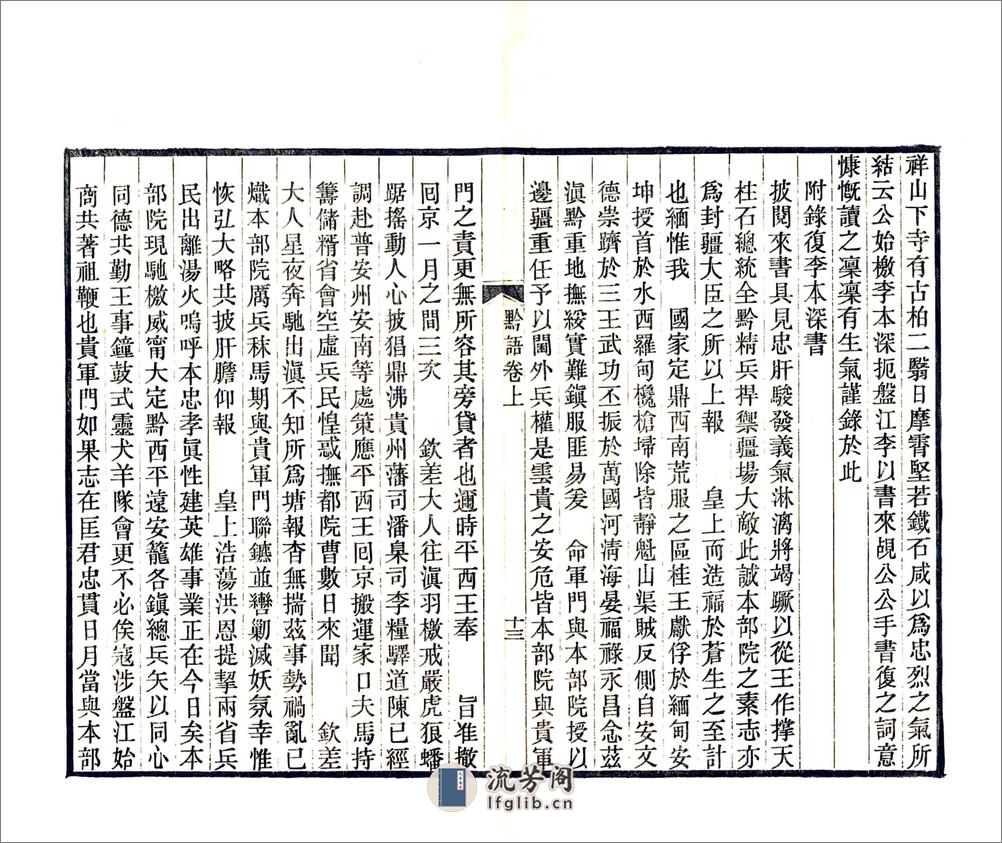 祥山下寺有古柏二翳日摩霄堅若鐵石咸以爲忠烈之氣所
結云公始檄李本深扼盤江李以書來覘公公手書復之詞意
慷慨讀之凜凜有生氣謹錄於此
附錄復李本深書
披閱來書具見忠肝駿發義氣淋漓將竭蹶以從王作撐天
柱石總統全黔精兵捍禦疆場大敵此誠本部院之素志亦
爲封疆大臣之所以上報 皇上而造福於蒼生之至計
也緬惟我 國家定鼎西南荒服之區桂王獻俘於緬甸安
坤授首於水西羅甸欃槍埽除皆靜魁山渠賊反側自安文
德崇躋於三王武功丕振於萬國河淸海晏福祿永昌念茲
滇黔重地撫綏實難鎭服匪易爰 命軍門與本部院授以
邊疆重任予以閫外兵權是雲貴之安危皆本部院與貴軍
黔語卷上
十三
門之責更無所容其旁貸者也邇時平西王奉 旨准撤
囘京一月之間三次 欽差大人往滇羽檄戒嚴虎狼蟠
踞搖動人心披猖鼎沸貴州藩司潘臬司李糧驛道陳已經
調赴普安州安南等處策應平西王囘京搬運家口夫馬持
籌儲糈省會空虛兵民惶惑撫都院曹數日來聞 欽差
大人星夜奔馳出滇不知所爲塘報杳無揣茲事勢禍亂已
熾本部院厲兵秣馬期與貴軍門聯鑣並轡勦滅妖氛幸惟
恢弘大略共披肝膽仰報 皇上浩蕩洪恩提挈兩省兵
民出離湯火嗚呼本忠孝眞性建英雄事業正在今日矣本
部院現馳檄威甯大定黔西平遠安籠各鎭總兵矢以同心
同德共勤王事鐘鼓式靈犬羊隊會更不必俟寇涉盤江始
商共著祖鞭也貴軍門如果志在匡君忠貫日月當與本部
流芳阁
lfglib.cn